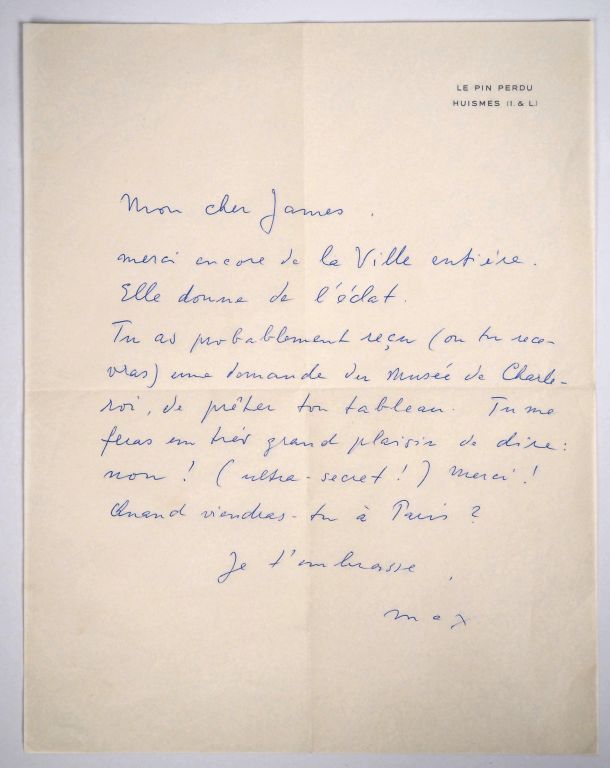 LE PIN PERDU
HUISMES (I. & L.)
Mon cher James.
merci encore de la Ville entière.
Elle donne de l'éclat.
Tu as probablement reçu (ou tu rece-
vras) une demande du Musée de Charle-
roi, de prêter ton tableau. Tu me
feras un très grand plaisir de dire:
non! (ultra-secret!) Merci!
Quand viendras-tu à Paris?
Je t'embrasse,
max